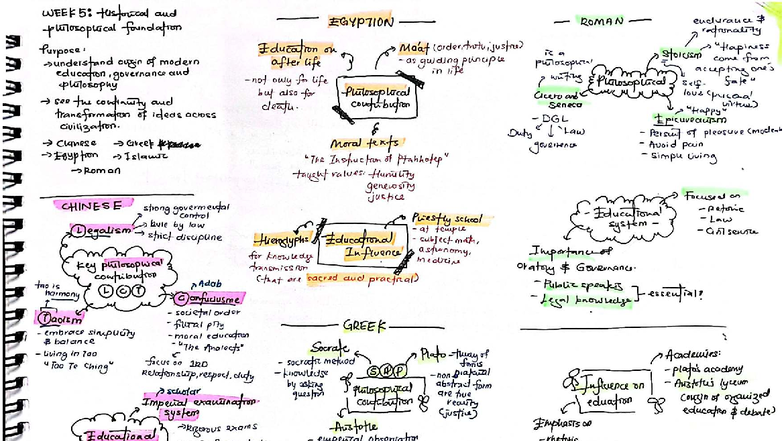 WEEK 5: Historical and
philosophical foundation
Purpose:
→ understand origin of modern
education, governance and
philosophy
→ see the continuity and
transformation of ideas across
civilization.
→ Chinese → Greek
→ Egyption → Islamic
→ Roman
CHINESE
Legalism
→ strong governmental
control
→ Rule by law
→ strict discipline
Key philosophical
contribution
L C T
Tao is
harmony
Taoism
- embrace simplicity
& balance
- living in Tao
"Tao Te Ching"
Adab
Confucianisme
- societal order
- filial piety
- moral education
- "The Analects"
focus on
Relationship, respect, duty
scholar
Imperial examination
system
→ rigorous exams
Educational
EGYPTION
Education on
after life
- not only for life
but also for
death.
Maat (order, truth, justice)
- as guiding principle
in life
Philosophical
contribution
Moral texts
"The Instruction of Ptahhotep"
taught values: Humility
generosity
justice
Hieroglyphs
for knowledge
transmission
(that are sacred and practical)
Educational
Influence
Priestly school
- at temple
- subject math,
astronomy,
medicine
GREEK
Socrate
- socratic method
- knowledge
by asking
question
S A P
philosophical
contribution
Plato
- Theory of
forms
- non physical
abstract form
are true
reality
(justice)
Aristotle
- empirical observation
ROMAN
is a
philosopher
writing
Cicero and
Seneca
- DGL
Duty
Law
governance
Philosophical
Stoicism
endurance &
rationality
"Happiness
come from
accepting one's
fate"
"Happy"
Epicureanism
- Pursuit of pleasure
- Avoid pain
- Simple living
Educational
system
Focused on
- Retoric
- Law
- Civil service
Importance of
Oratory & Governance.
- Public speakers
- Legal knowledge
essential!
Influence on
education
Academies:
- plato's academy
- Aristotle's lyceum
(origin of organized
education & debate)
Emphasis on
- rhetoric